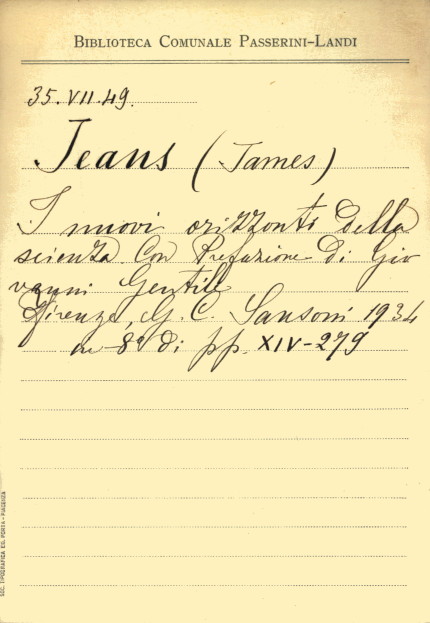 BIBLIOTECA COMUNALE PASSERINI-LANDI
35.VII.49.
Jeans (James)
I nuovi orizzonti della
scienza. Con Prefazione di Gio
vanni Gentile
Firenze, G. C. Sansoni 1934
in 8º di pp. XIV-279
SOC. TIPOGRAFICA ED. PORTA - PIACENZA